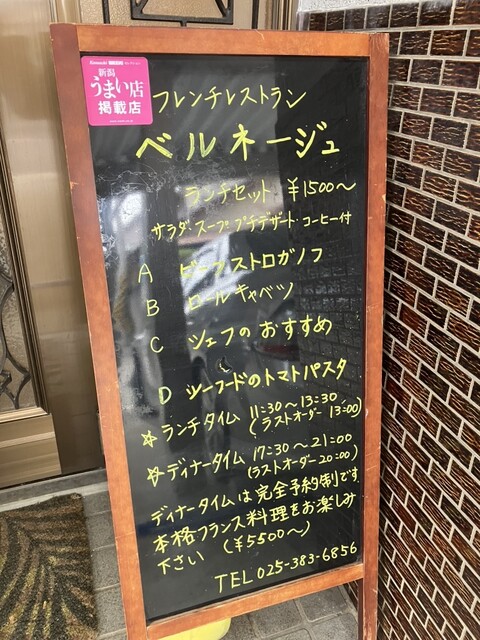 新潟
うまい店
掲載店
フレンチレストラン
ベルネージュ
ランチセット ¥1500〜
サラダ・スープ プチデザート・コーヒー付
A ビーフストロガノフ
B ロールキャベツ
C シェフのおすすめ
D シーフードのトマトパスタ
☆ランチタイム 11:30〜13:30
(ラストオーダー 13:00)
☆ディナータイム 17:30〜21:00
(ラストオーダー 20:00)
ディナータイムは完全予約制です
本格フランス料理をお楽しみ
下さい (¥5500〜)
TEL 025-383-6856